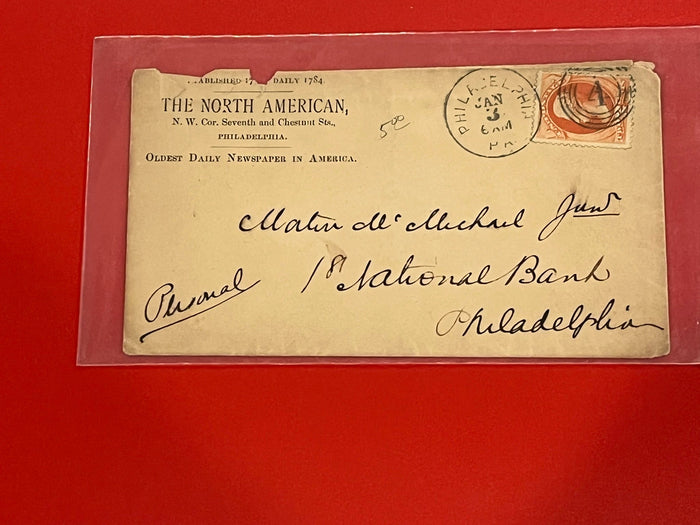 ABLISHED 17 DAILY 1784.
THE NORTH AMERICAN,
N. W. Cor. Seventh and Chestnut Sts.,
PHILADELPHIA.
OLDEST DAILY NEWSPAPER IN AMERICA.
5 00
PHILADELPHIA
JAN
3
6 AM
PA.
A
Matin Mc Michael Junr
1st National Bank
Philadelphia
Personal